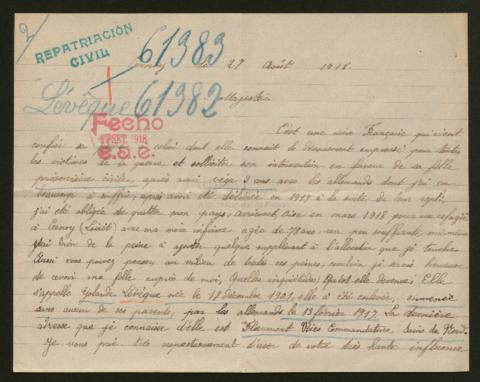 2)
REPATRIACIÓN
CIVIL
61383
61382
Lévêque
Fecho
17 SET. 1918
e.a.e.
le 27 Août 1918.
Majesté
C'est une mère Française qui vient
confier sa celui dont elle connait le dévouement empressé pour toutes
les victimes de la guerre et solliciter son intervention en faveur de sa fille
prisonnière civile, après avoir 3 ans avec les allemands dont j'ai eu
beaucoup à souffrir, après avoir été délivrée en 1917 à la suite de leur repli,
j'ai été obligée de quitter mon pays, Aisne en mars 1918 pour me réfugier
à (Loiret) avec ma mère infirme agée de 79 ans un peu souffrante moi-même
j'ai bien de la peine à ajouter quelque supplément à l'allocation que je touche
Aussi vous pouvez penser au milieu de toutes ces peines, combien je serais heureuse
de revoir ma fille auprès de moi, Quelles inquiétudes! Qu'est-elle devenue? Elle
s'appelle Yolande Lévêque née le 18 décembre 1901, elle a été enlevée, emmenée
sans aucun de ses parents, par les allemands le 13 février 1917. La dernière
adresse que je connaisse d'elle est Commandature, Nord.
Je vous prie très respectueusement d'user de votre très haute influence